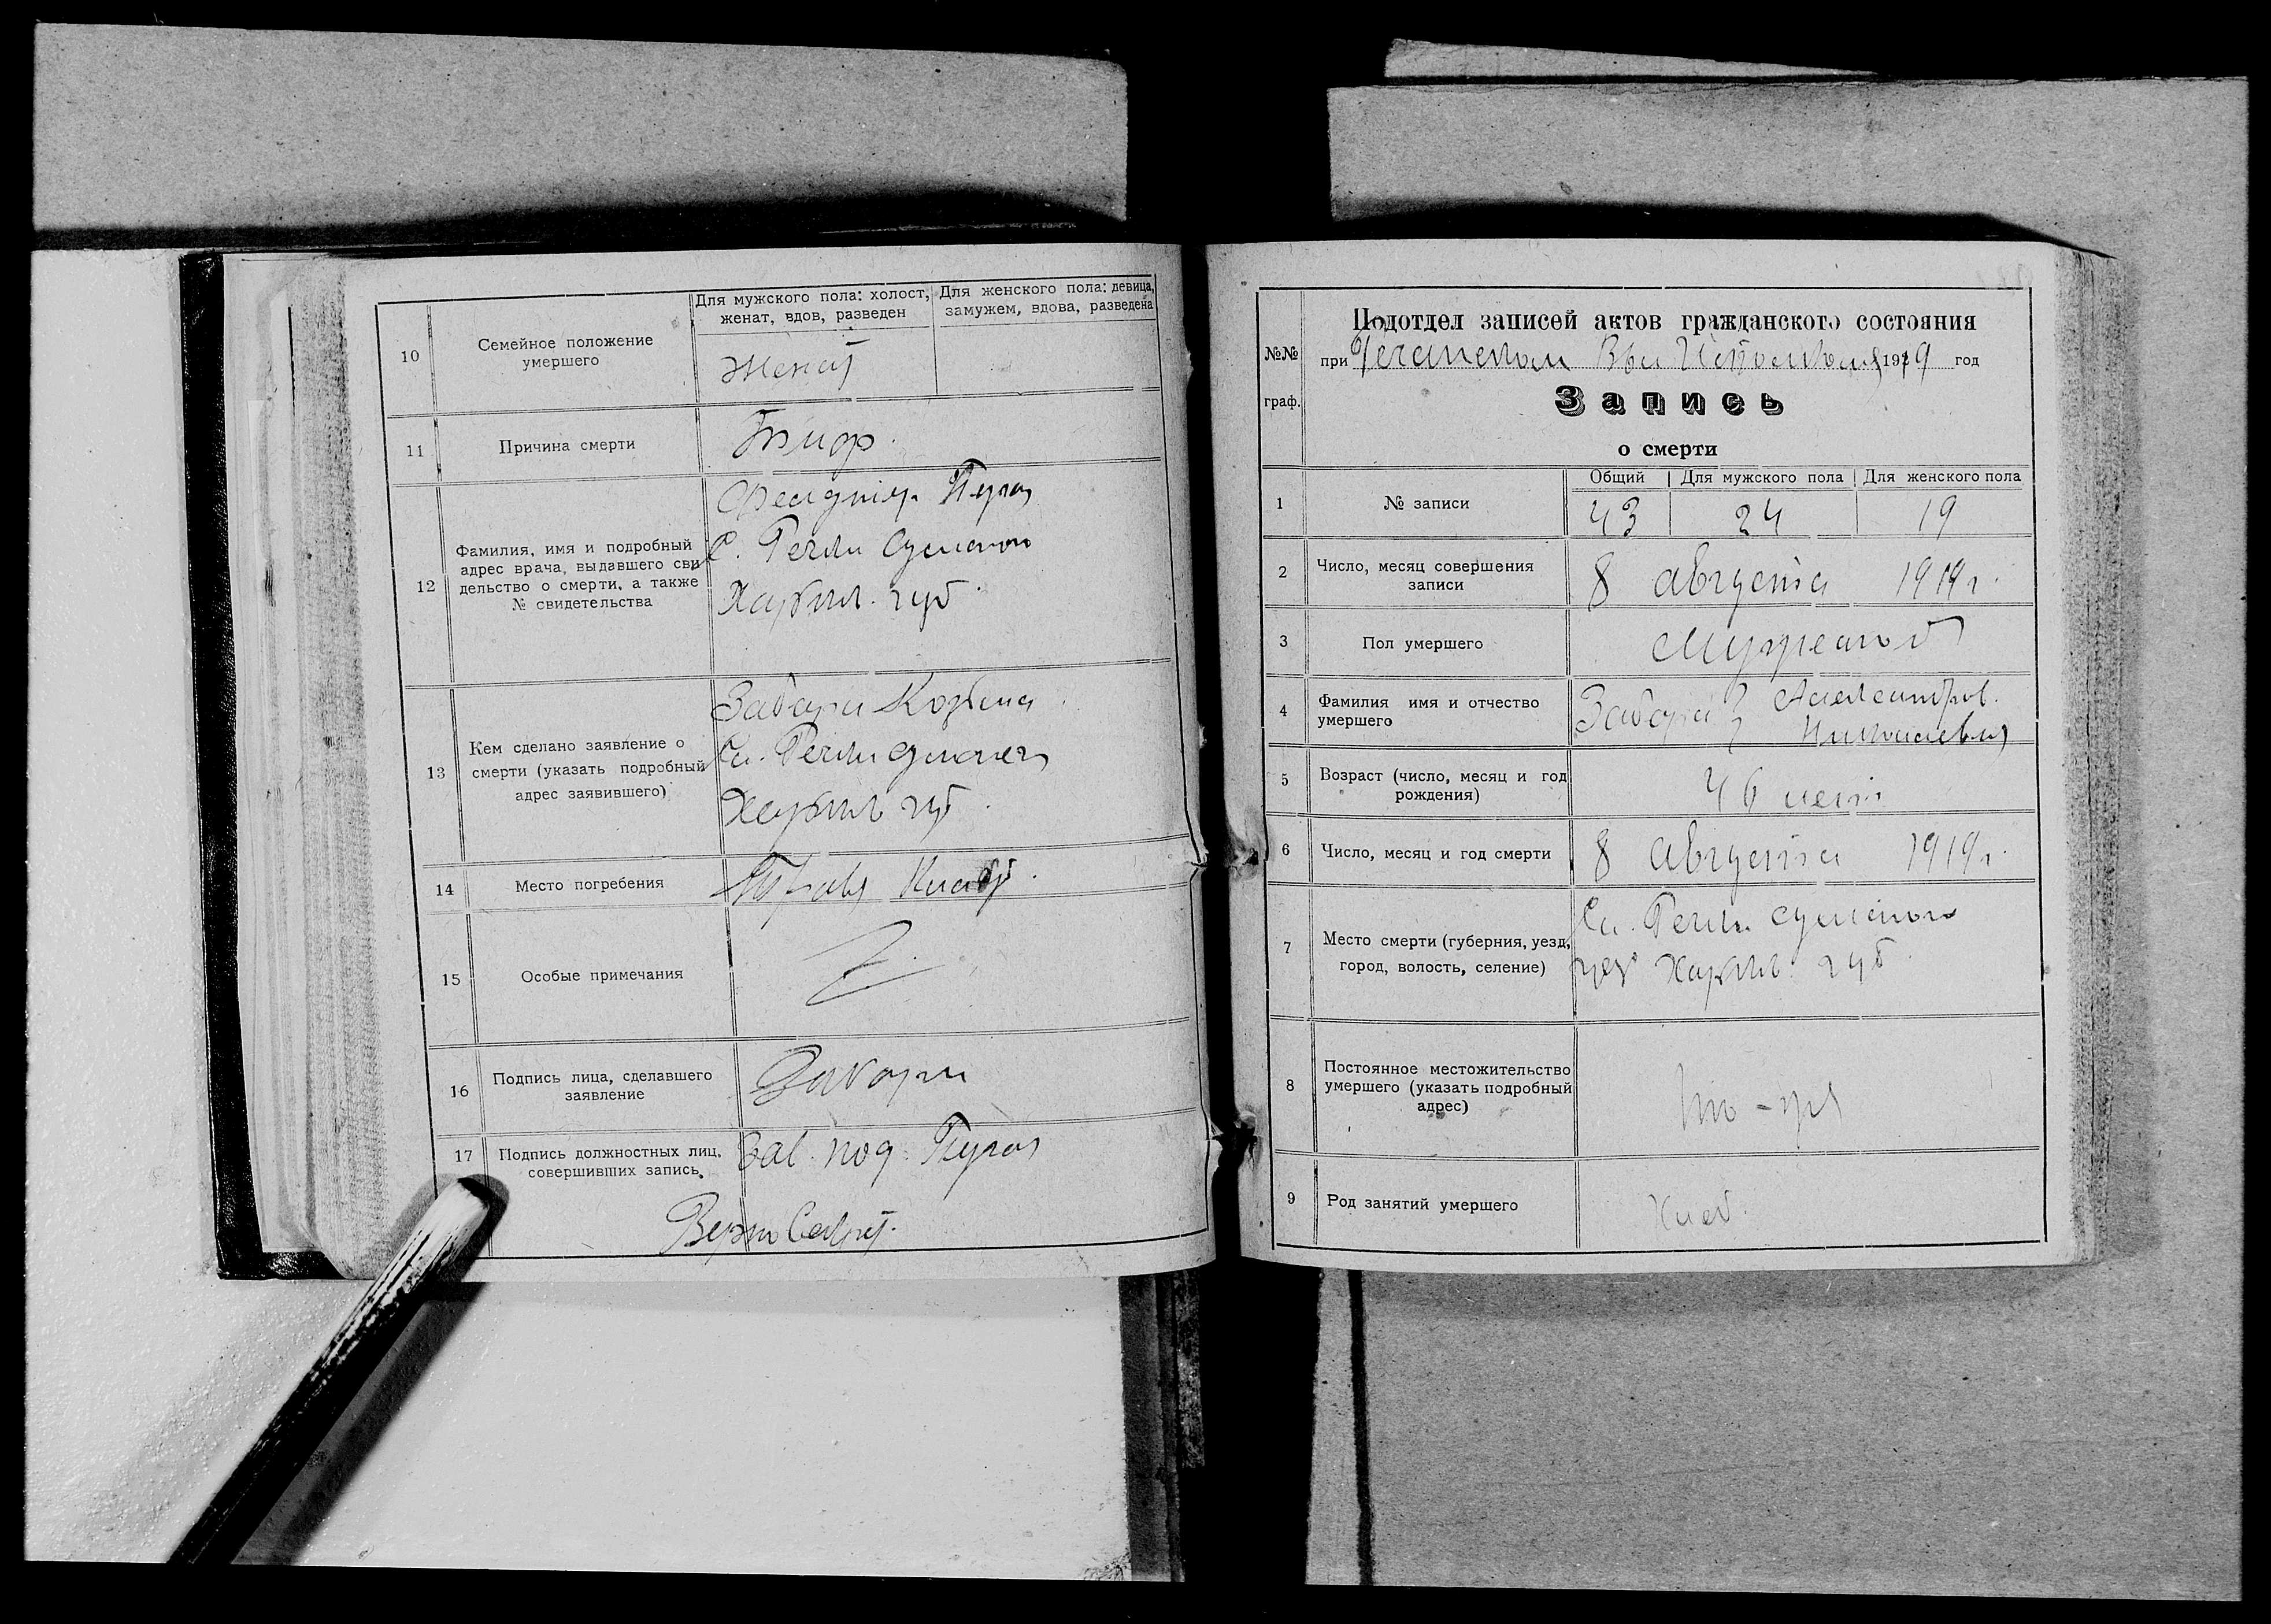 10
Семейное положение
умершего
Для мужского пола: холост,
женат, вдов, разведен
Для женского пола: девица,
замужем, вдова, разведена
Женат
11
Причина смерти
Тиф.
12
Фамилия, имя и подробный
адрес врача, выдавшего сви
дельство о смерти, а также
№ свидетельства
С. Речки Сумского
Харьков. губ.
13
Кем сделано заявление о
смерти (указать подробный
адрес заявившего)
Сл. Речки
Харьков губ.
14
Место погребения
15
Особые примечания
16
Подпись лица, сделавшего
заявление
17
Подпись должностных лиц,
совершивших запись
Зав. под.
Верно
№№
граф.
Подотдел записей актов гражданского состояния
при Речанском Вол 1919 год
Запись
о смерти
1
№ записи
Общий
Для мужского пола
Для женского пола
43
24
19
2
Число, месяц совершения
записи
8 августа 1919 г.
3
Пол умершего
Мужской
4
Фамилия имя и отчество
умершего
Александров.
Николаевич
5
Возраст (число, месяц и год
рождения)
46 лет
6
Число, месяц и год смерти
8 августа 1919 г.
7
Место смерти (губерния, уезд,
город, волость, селение)
Сл. Речки Сумского
уез Харьков. губ.
8
Постоянное местожительство
умершего (указать подробный
адрес)
9
Род занятий умершего
Хлеб.